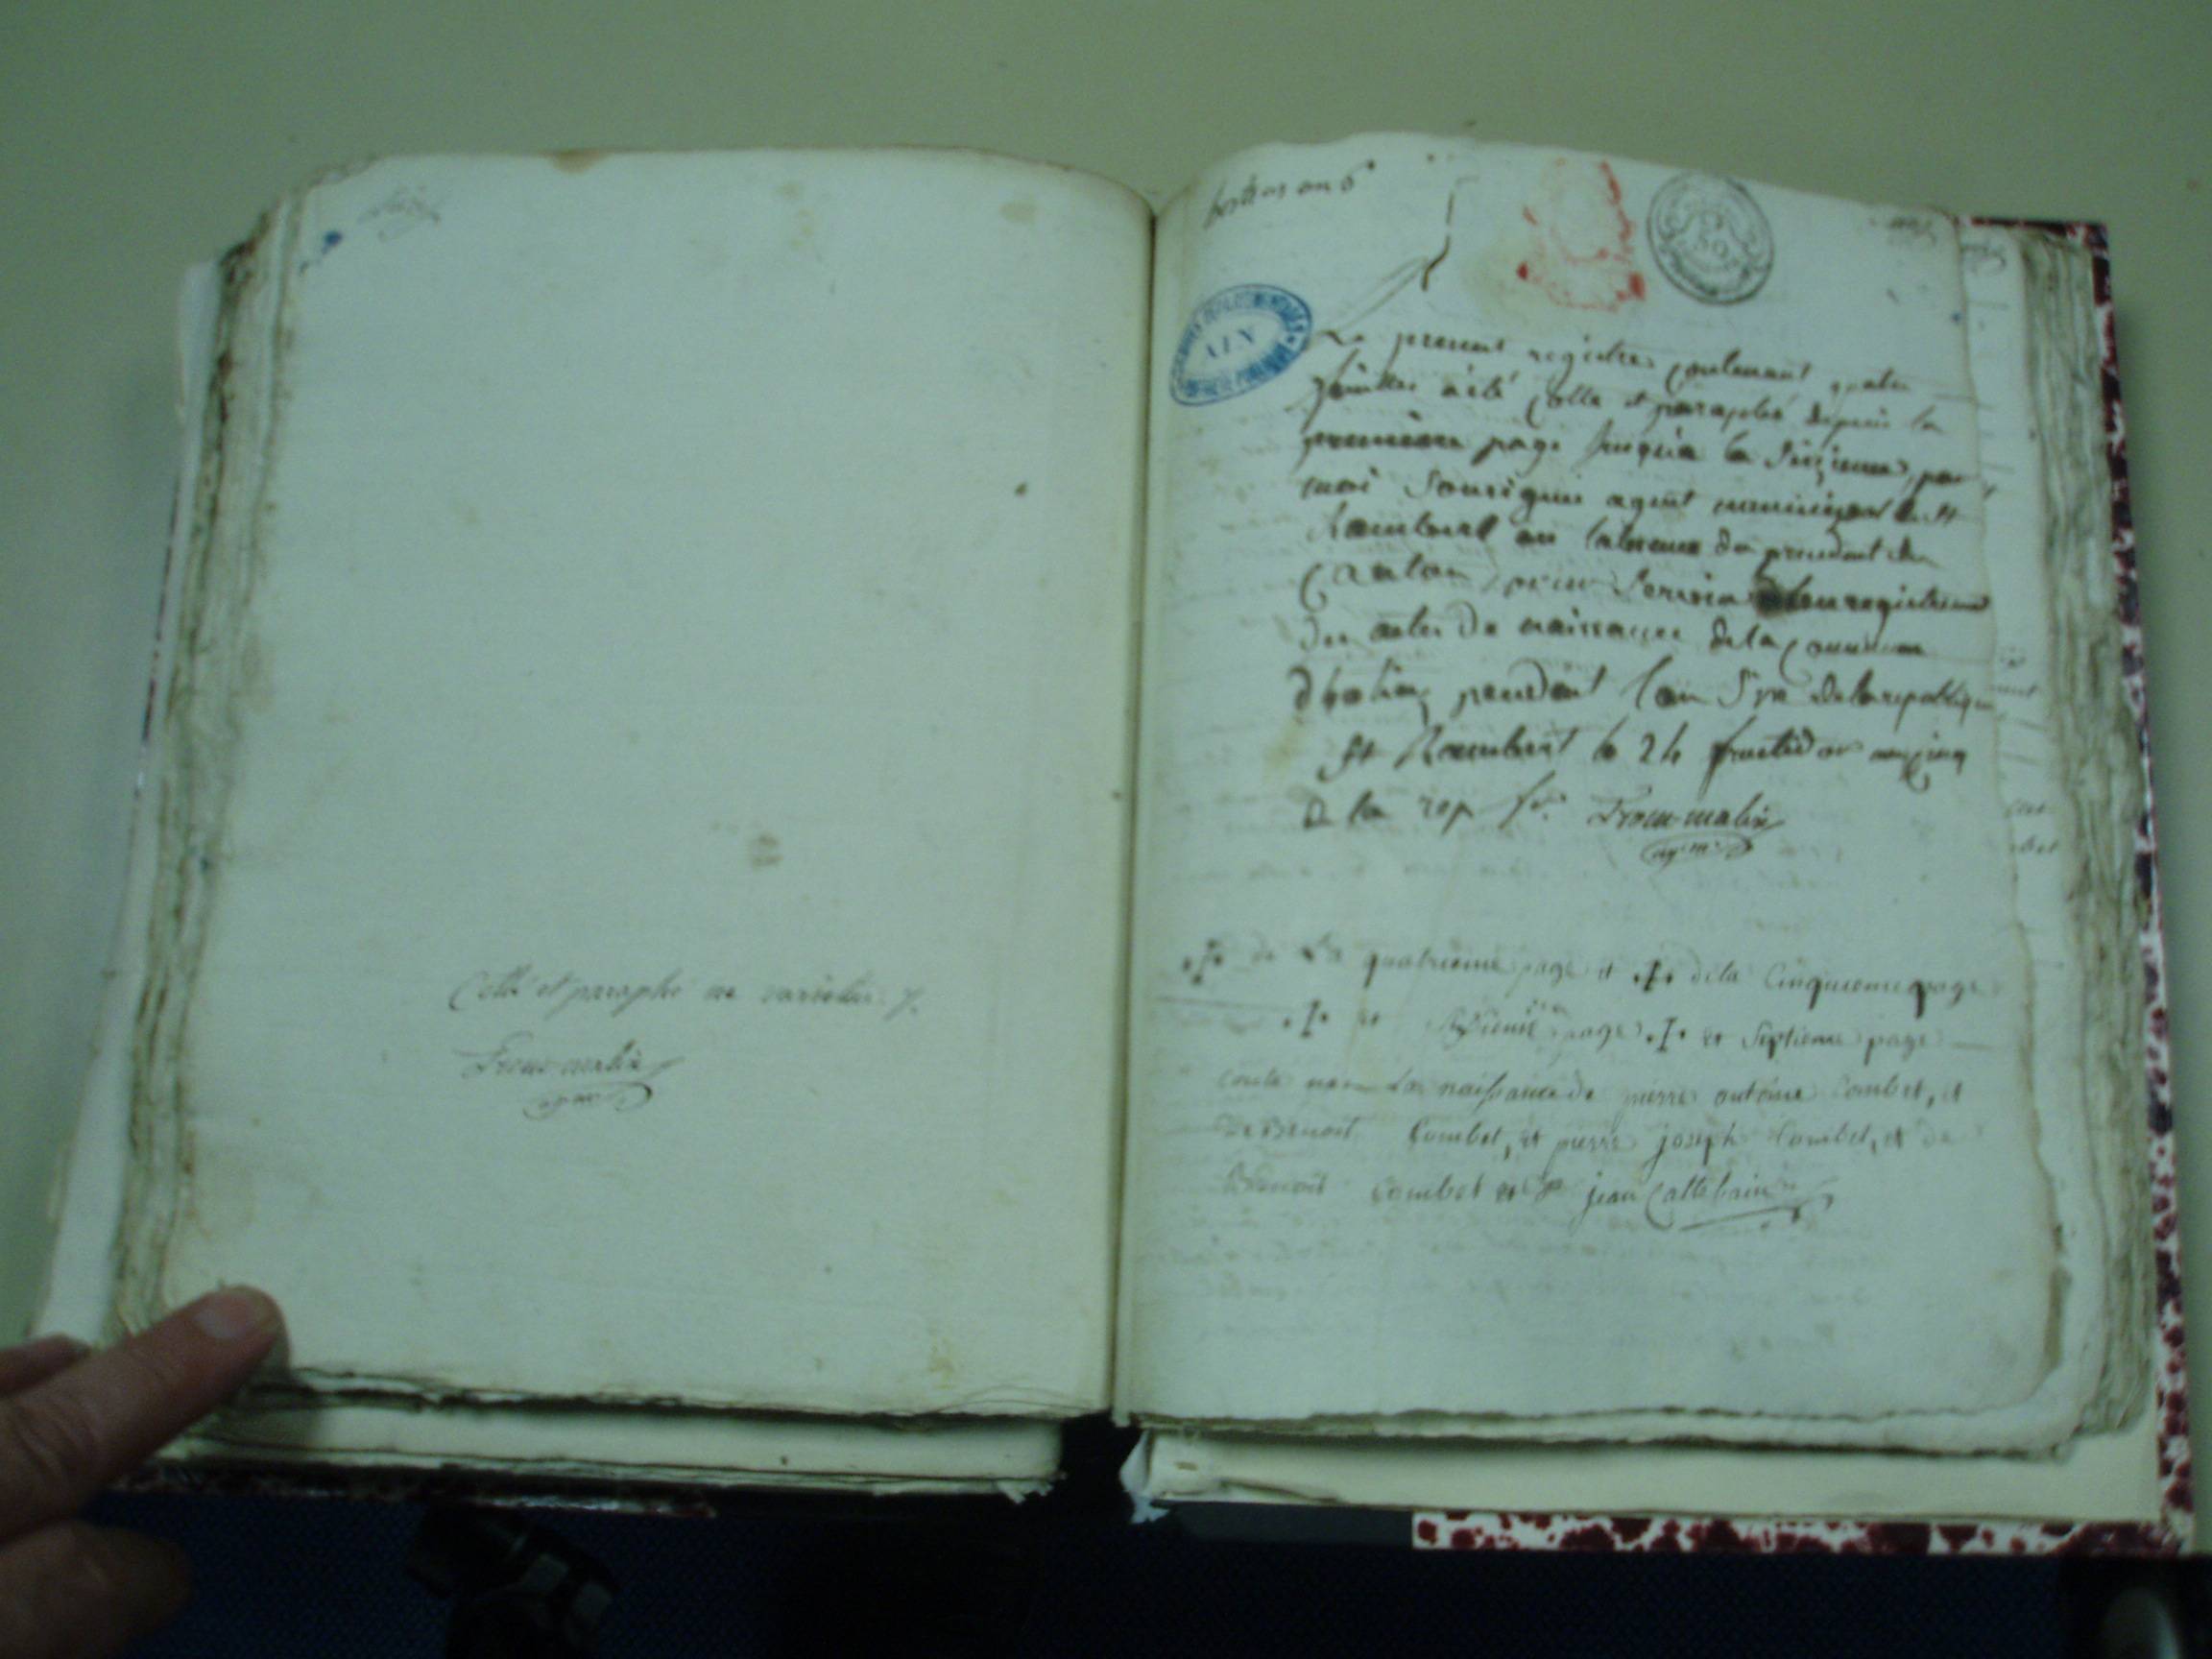 Collé et paraphé ne varietur
Trouc-malin
an 6
AIN
Le present registre contenant quatre
feuilles a été Collé et paraphé depuis la
premiere page jusqu'a la Seizieme, par
moi Sousigné agent municipal de St
Rambert en l'absence du president du
Canton pour Servir a lenregistrement
des actes de naissance de la Commune
pendant l'an Six de la republique
St Rambert le 24 fructidor an cinq
de la rep fse
de La quatrieme page et de la Cinquieme page
et page et Septieme page
La naissance de pierre antoine Combet, et
De Benoit Combet, et pierre joseph Combet, et de
Benoit Combet et jean